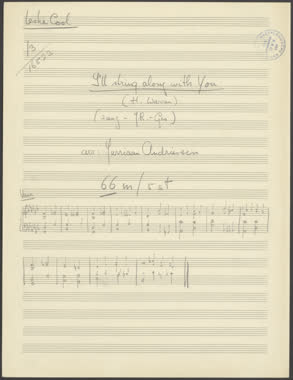 Leske Cool
13
16533
I'll string along with You
(H. Warren)
(zang - Ph. - Gu)
arr: Jurriaan Andriessen
66 m / 5 st